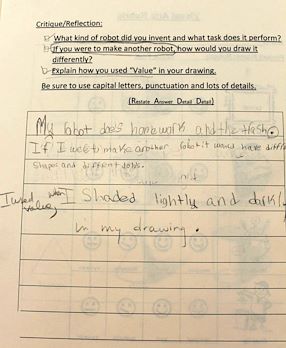 Critique/Reflection:
What kind of robot did you invent and what task does it perform?
If you were to make another robot, how would you draw it
differently?
Explain how you used "Value" in your drawing.
Be sure to use capital letters, punctuation and lots of details.
(Restate Answer Detail Detail)
My robot does homework and the trash.
If I were to make another robot it would have diff
Shapes and
I used when I Shaded lightly and darkl
value
in my drawing.